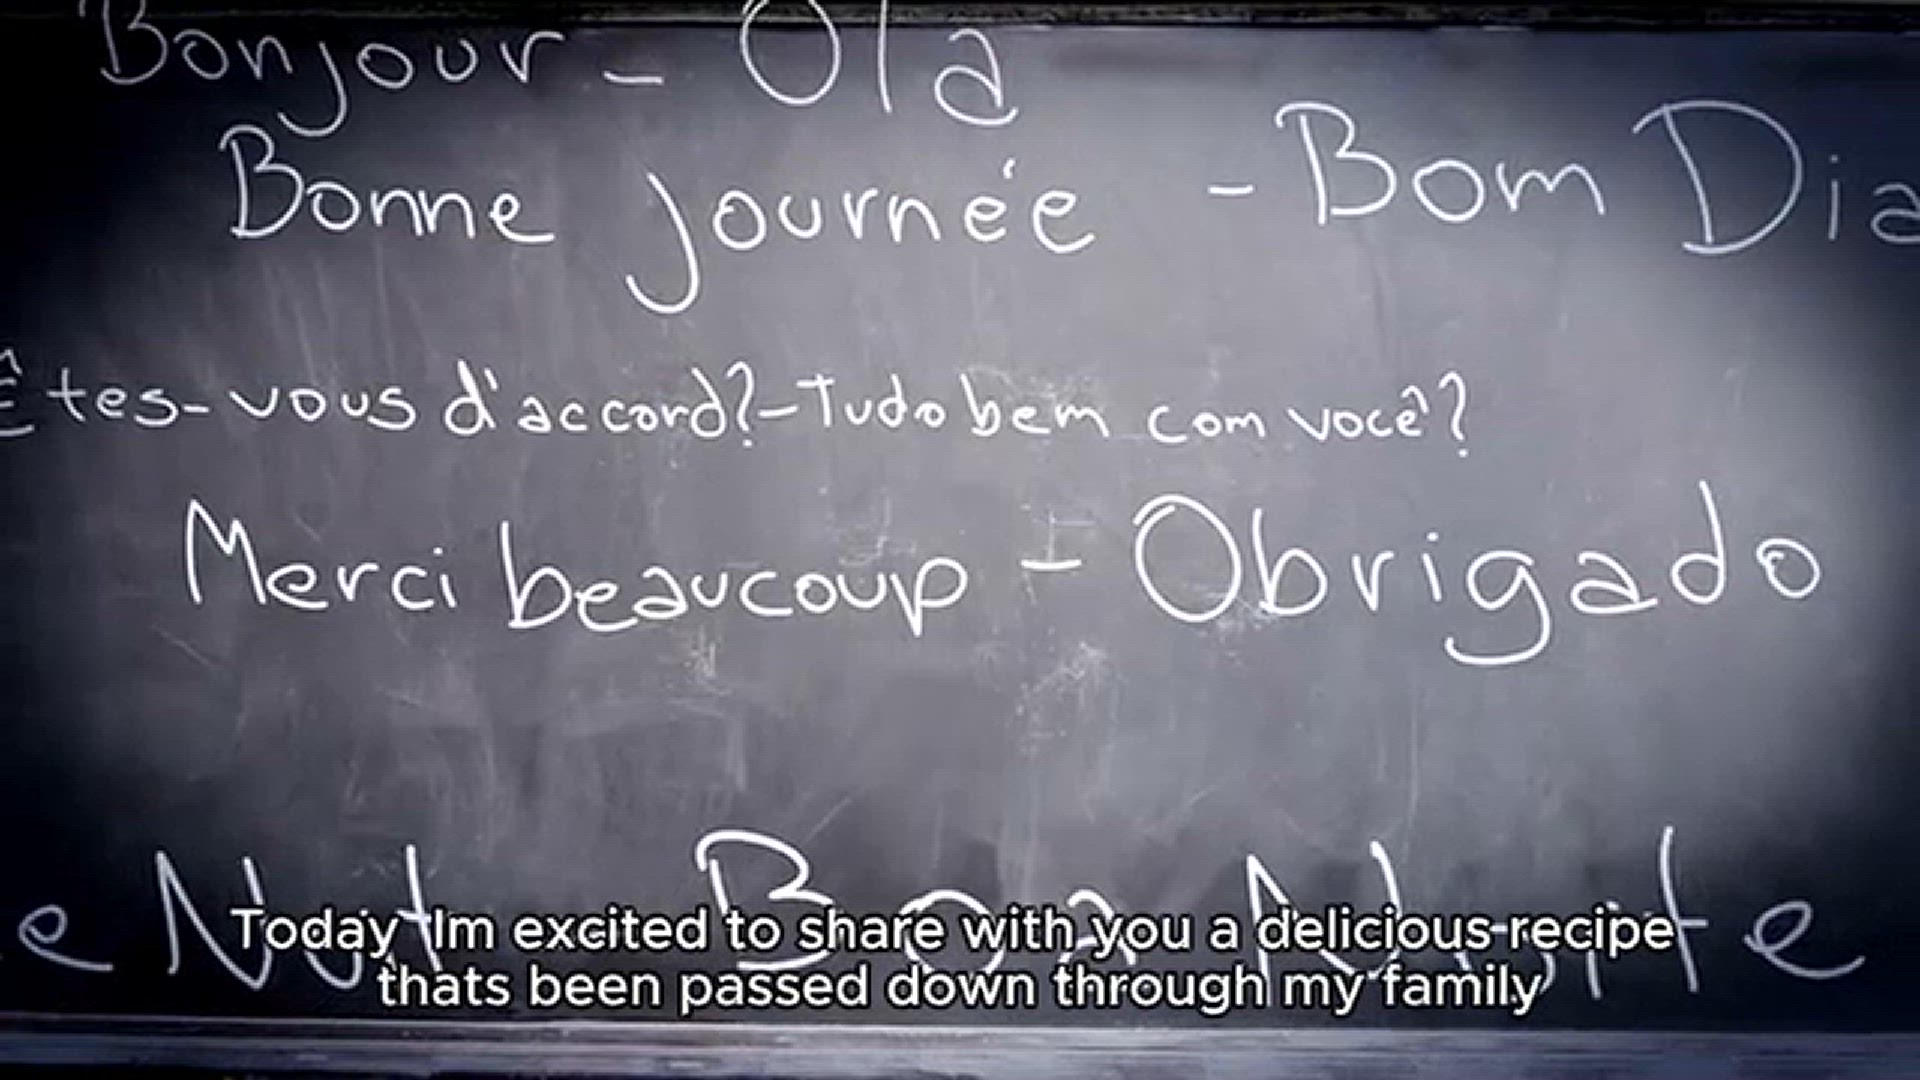 Bonjour - Ola
Bonne journée - Bom Dia
Êtes-vous d'accord? - Tudo bem com você?
Merci beaucoup - Obrigado
e Nuit Boa Noite
Today Im excited to share with you a delicious recipe
thats been passed down through my family